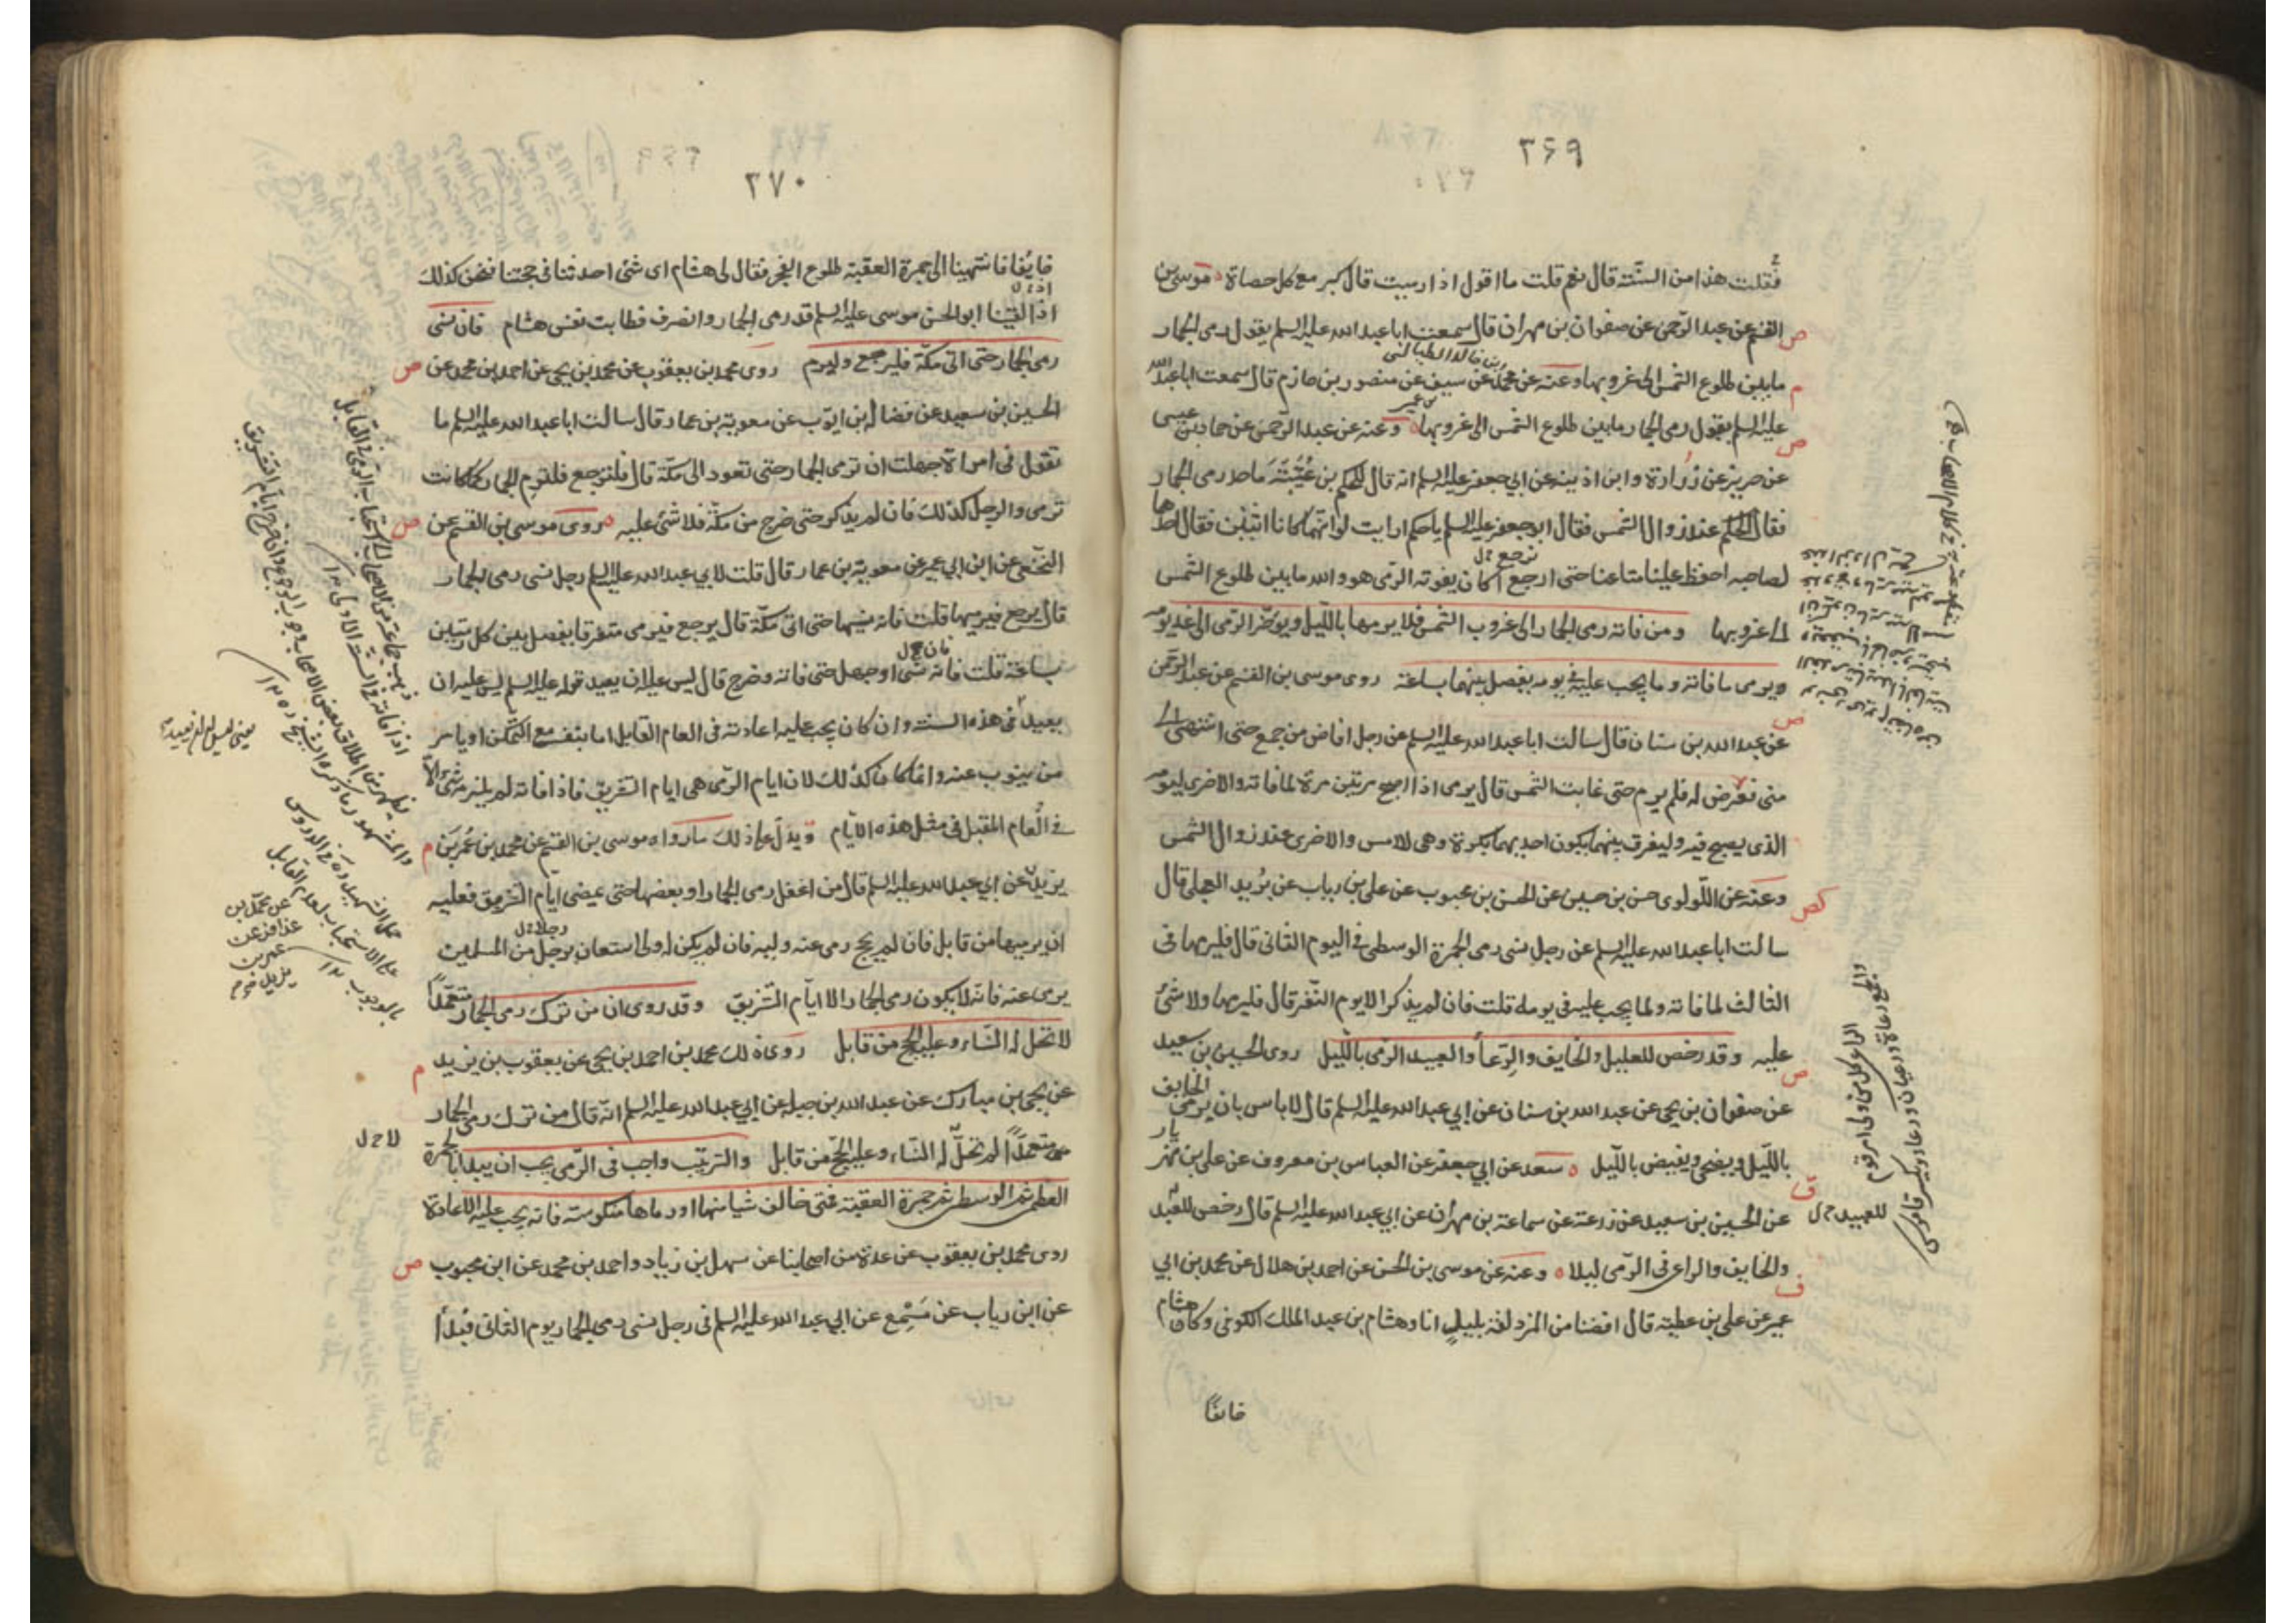 ٢۶٩
فقلت هذا من السنّة قال نعم قلت ما اقول اذا رميت قال كبر مع كل حصاة موسى بن
القسم عن عبد الرّحمن عن صفوان بن مهران قال سمعت ابا عبد الله عليه السلم يقول رمى الجمار
ما بين طلوع الشمس الى غروبها وعنه عن محمد عن سيف عن منصور بن حازم قال سمعت ابا عبد الله
عليه السلم يقول رمى الجمار ما بين طلوع الشمس الى غروبها وعنه عن عبد الرّحمن عن حماد بن عيسى
عن حريز عن زرارة وابن اذينه عن ابي جعفر عليه السلم انه قال للحكم بن عُتَيْبَةَ ما حد رمى الجمار
فقال الحكم عند زوال الشمس فقال ابو جعفر عليه السلم يا حكم ارايت لو انهما كانا اثنين فقال احدهما
لصاحبه احفظ علينا متاعنا حتى ارجع اكان يفوته الرّمى هو والله ما بين طلوع الشمس
الى غروبها ومن فاته رمى الجمار الى غروب الشمس فلا يرمها بالّليل ويوخّر الرّمى الى غد يومه
ويرمى ما فاته وما يجب عليه فى يومه يفصل بينهما بساعة روى موسى بن القسم عن عبد الرّحمن
عن عبد الله بن سنان قال سالت ابا عبد الله عليه السلم عن رجل افاض من جمع حتى انتهى الى
منى فعرض له فلم يرم حتى غابت الشمس قال يرمى اذا اصبح مرتين مرة لما فاته والاخرى ليومه
الذى يصبح فيه وليفرق بينهما يكون احديهما بكرة وهى للامس والاخرى عند زوال الشمس
وعنه عن اللّولوى حسن بن حسين عن الحسن بن محبوب عن على بن رياب عن بُريد العجلى قال
سالت ابا عبد الله عليه السلم عن رجل نسى رمى الجمرة الوسطى فى اليوم الثانى قال فليرمها فى
الثالث لما فاته ولما يجب عليه فى يومه قلت فان لم يذكر الا يوم النّفر قال فليرمها ولا شئ
عليه وقد رخص للعليل والخايف والرّعاة والعبيد الرّمى بالّليل روى الحسين بن سعيد
عن صفوان بن يحيى عن عبد الله بن سنان عن ابي عبد الله عليه السلم قال لا باس بان يرمى الخايف
بالّليل ويضحى ويفيض بالّليل سعد عن ابي جعفر عن العباس بن معروف عن على بن مهزيار
عن الحسين بن سعيد عن زرعة عن سماعة بن مهران عن ابي عبد الله عليه السلم قال رخص للعبد
للعبيد خ ل
والخايف والراعى فى الرّمى ليلا وعنه عن موسى بن الحسن عن احمد بن هلال عن محمد بن ابي
عمير عن على بن عطية قال افضنا من المزدلفة بليل انا وهشام بن عبد الملك الكوفى وكان هشام
خائفاً
٢٧٠
خايفا فانتهينا الى جمرة العقبة طلوع الفجر فقال لى هشام اى شئ احدثنا فى حجتنا فنحن كذلك
اذا لقينا ابو الحسن موسى عليه السلم قد رمى الجمار وانصرف فطابت نفس هشام فان نسى
رمى الجمار حتى اتى مكّة فليرجع وليرم روى محمد بن يعقوب عن محمد بن يحيى عن احمد بن محمد عن
الحسين بن سعيد عن فضالة بن ايّوب عن معوية بن عمار قال سالت ابا عبد الله عليه السلم ما
تقول فى امراة جهلت ان ترمى الجمار حتى تعود الى مكّة قال فلترجع فلترم الجمار كما كانت
ترمى والرجل كذلك فان لم يذكر حتى خرج من مكّة فلا شئ عليه روى موسى بن القسم عن
النّخعى عن ابن ابي عمير عن معوية بن عمار قال قلت لابي عبد الله عليه السلم رجل نسى رمى الجمار
قال يرجع فيرميها قلت فانه نسيها حتى اتى مكّة قال يرجع فيرمى متفرقا يفصل بين كل رميتين
بساعة قلت فانه نسى او جهل حتى فاته وخرج قال ليس عليه ان يعيد قوله عليه السلم ليس عليه ان
يعيد فى هذه السنة وان كان يجب عليه اعادته فى العام القابل اما بنفسه مع التمكّن او يامر
من ينوب عنه وانما كان كذلك لان ايام الرّمى هى ايام التشريق فاذا فاته لم يلزمه شئ الا
فى العام المقبل فى مثل هذه الايّام ويدل على ذلك ما رواه موسى بن القسم عن محمد بن عُمَر بن
يزيد عن ابي عبد الله عليه السلم قال من اغفل رمى الجمار او بعضها حتى يمضى ايام التشريق فعليه
ان يرميها من قابل فان لم يحج رمى عنه وليه فان لم يكن له ولى استعان برجل من المسلمين
يرمى عنه فانه لا يكون رمى الجمار الا ايّام التّشريق وقد روى ان من ترك رمى الجمار متعمّداً
لا تحل له النّساء وعليه الحج من قابل روى ذلك محمد بن احمد بن يحيى عن يعقوب بن يزيد
عن يحيى بن مبارك عن عبد الله بن جبلة عن ابي عبد الله عليه السلم انّه قال من ترك رمى الجمار
متعمّداً لم تحلّ له النّساء وعليه الحجّ من قابل والترتيب واجب فى الرّمى يجب ان يبدا بالجمرة
لا خ ل
العظمى ثم الوسطى ثم جمرة العقبة فمتى خالف شيا منها او رماها منكوسة فانه يجب عليه الاعادة
روى محمد بن يعقوب عن عدة من اصحابنا عن سهل بن زياد واحمد بن محمد عن ابن محبوب
عن ابن رياب عن مَسْمِع عن ابي عبد الله عليه السلم فى رجل نسى رمى الجمار يوم الثانى فبدأ